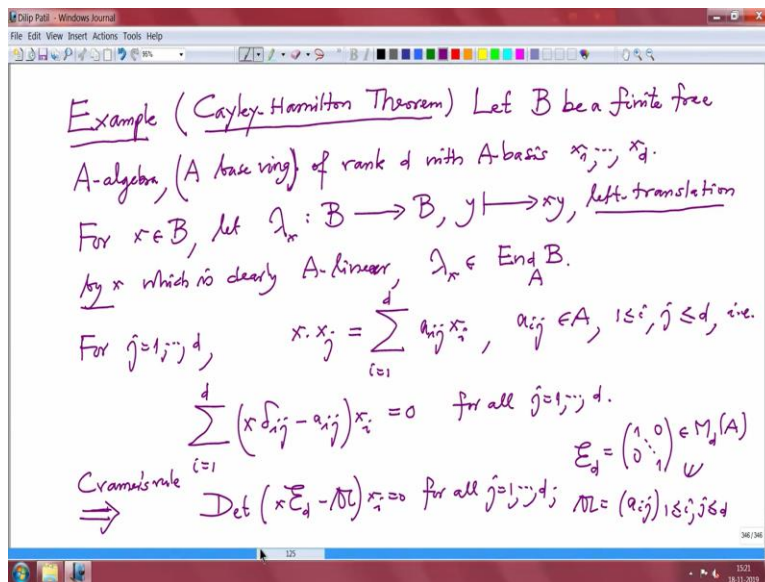 Dilip Patil - Windows Journal
File Edit View Insert Actions Tools Help
Example (Cayley-Hamilton Theorem) Let B be a finite free
A-algebra, (A base ring) of rank d with A-basis x_1, ..., x_d.
For x ∈ B, let λ_x : B → B, y ↦ xy, left-translation
by x which is clearly A-linear, λ_x ∈ End_A B.
For j=1,..,d, x·x_j = ∑_{i=1}^{d} a_{ij} x_i, a_{ij} ∈ A, 1≤i,j≤d, i.e.
∑_{i=1}^{d} (x δ_{ij} - a_{ij}) x_i = 0 for all j=1,..,d.
E_d = (1 0 ⋱ 0 1) ∈ M_d(A)
Cramer's rule
⟹ Det (x E_d - 𝔄) x_i = 0 for all j=1,..,d; 𝔄 = (a_{ij})_{1≤i,j≤d}
346/346
125
15:21
18-11-2019